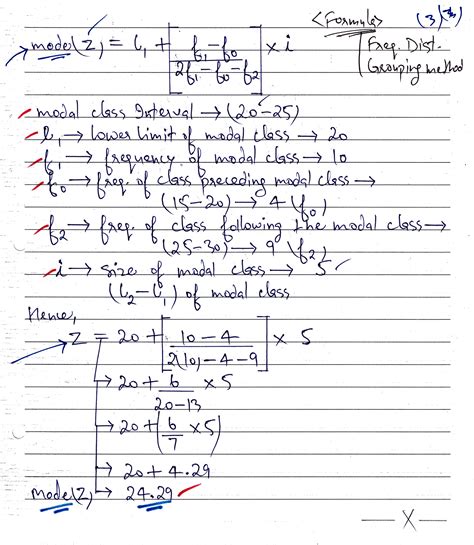 <Formula> (3)
mode(Z) = l₁ + [f₁-f₀ / 2f₁-f₀-f₂] x i
Freq. Dist.
Grouping method
modal class Interval → (20-25)
l₁ → lower limit of modal class → 20
f₁ → frequency of modal class → 10
f₀ → freq. of class preceding modal class →
(15-20) → 4 (f₀)
f₂ → freq. of class following the modal class →
(25-30) → 9 (f₂)
i → size of modal class → 5
(l₂-l₁) of modal class
Hence,
Z = 20 + [10-4 / 2(10)-4-9] x 5
→ 20 + 6 / 20-13 x 5
→ 20 + (6/7 x 5)
→ 20 + 4.29
mode(Z) → 24.29
—X—